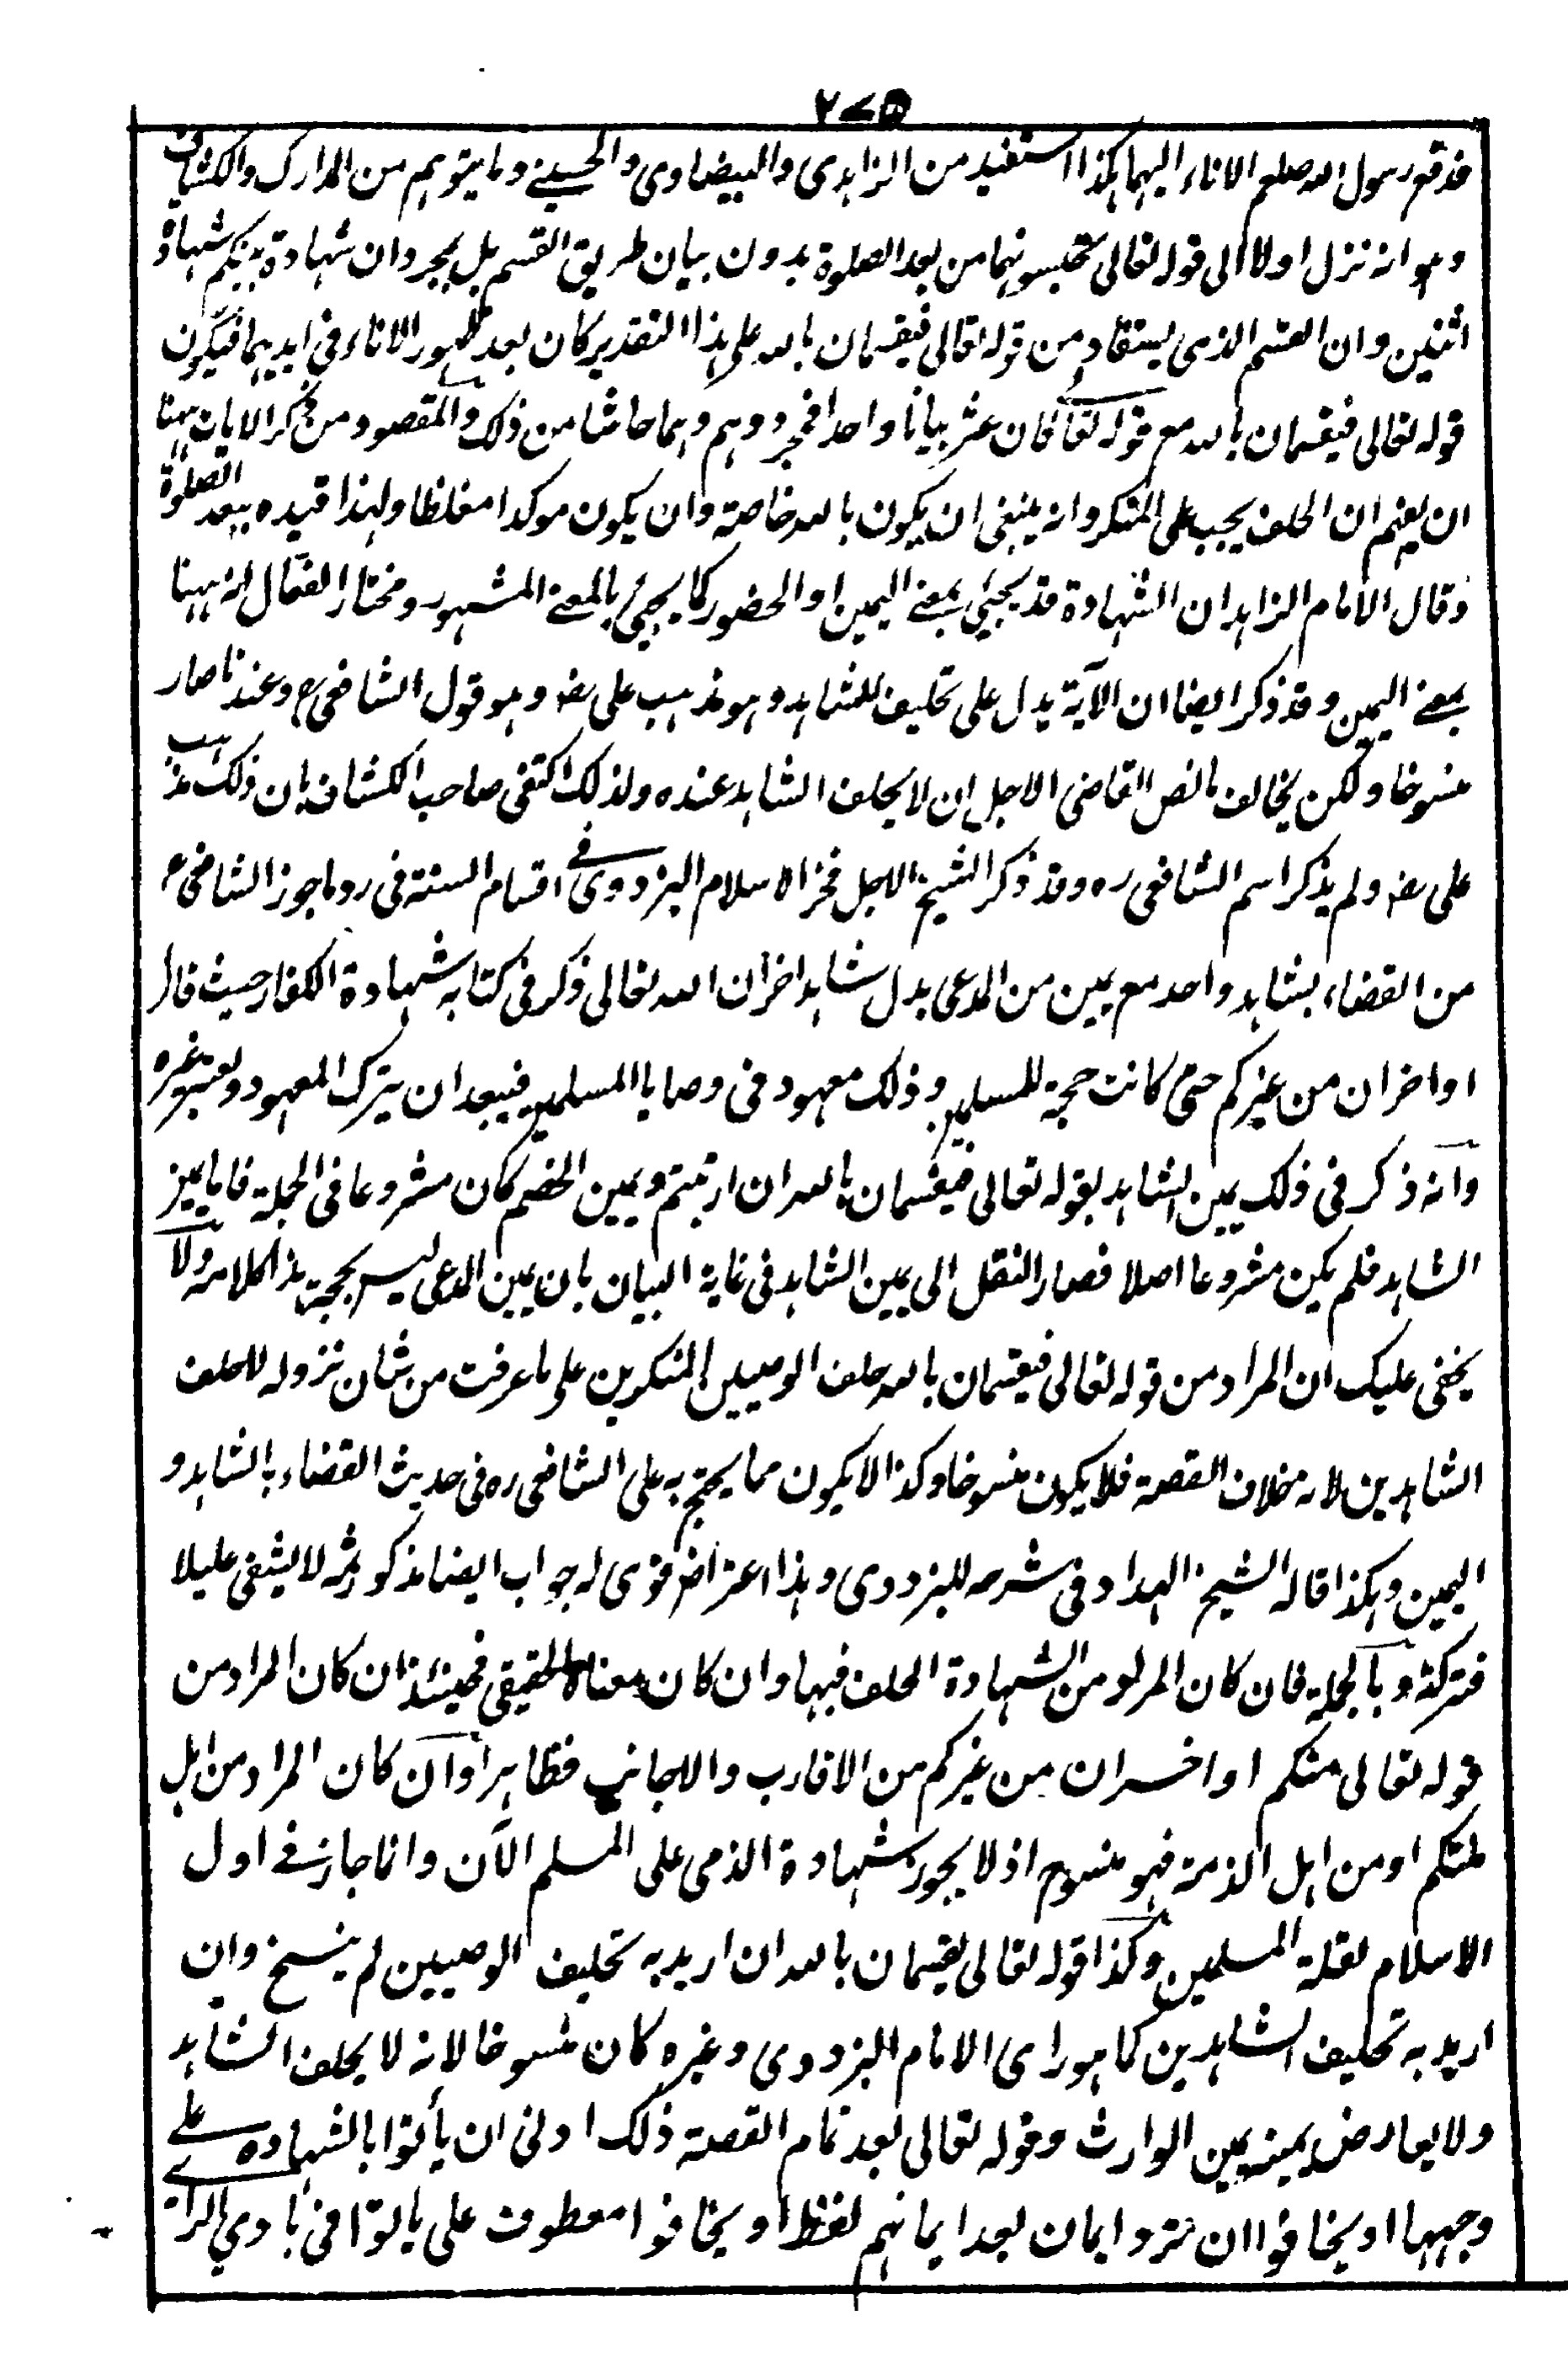 ٢٧٥
فدفع رسول الله صلعم الاناء اليهما هكذا استفيد من الزاهدى والبيضاوى والحسينى وما يتوهم من المدارك والكشاف
وهو انه نزل اولا الى قوله تعالى تحبسونهما من بعد الصلوة بدون بيان طريق القسم بل بمجرد ان شهادة بينكم شهادة
اثنين وان القسم الذى يستفاد من قوله تعالى فيقسمان بالله على هذا التقدير كان بعد ظهور الاناء فى ايديهما فيكون
قوله تعالى فيقسمان بالله مع قوله تعا فان عثر بيانا واحدا فمجرد وهم وهما حاشا من ذلك والمقصود من ذكر الايات ههنا
ان يفهم ان الحلف يجب على المنكر وانه ينبغى ان يكون بالله خاصة وان يكون موكدا مغلظا ولهذا قيده ببعد الصلوة
وقال الامام الزاهد ان الشهادة قد يجيئ بمعنے اليمين او الحضور كما يجيئ بالمعنے المشهور ومختار القفال انه ههنا
بمعنے اليمين وقد ذكر ايضا ان الآية يدل على تحليف الشاهد وهو مذهب على رض وهو قول الشافعى رح وعندنا صار
منسوخا ولكن يخالف ما نص القاضى الاجل ان لا يحلف الشاهد عنده ولذلك اكتفى صاحب الكشاف بان ذلك مذهب
على رض ولم يذكر اسم الشافعى ره وقد ذكر الشيخ الاجل فخر الاسلام البزدوى فے اقسام السنة فى رد ما جوز الشافعى رح
من القضاء بشاهد واحد مع يمين من المدعى بدل شاهد اخر ان الله تعالى ذكر فى كتابه شهادة الكفار حيث قال
او اخران من غيركم حتى كانت حجة للمسلمين وذلك معهود فى وصايا المسلمين فيبعد ان يترك المعهود ويعتبر غيره
وانه ذكر فى ذلك يمين الشاهد بقوله تعالى فيقسمان بالله ان ارتبتم ويمين الخصم كان مشروعا فى الجملة فاما يمين
الشاهد فلم يكن مشروعا اصلا فصار النقل الى يمين الشاهد فى غاية البيان بان يمين المدعى ليس بحجة هذا كلامه ولا
يخفى عليك ان المراد من قوله تعالى فيقسمان بالله حلف الوصيين المنكرين على ما عرفت من شان نزوله لا حلف
الشاهدين لانه خلاف القصة فلا يكون منسوخا وكذا لا يكون مما يحتج به على الشافعى ره فى حديث القضاء بالشاهد و
اليمين وهكذا قاله الشيخ الهداد فى شرحه للبزدوى وهذا اعتراض قوى له جواب ايضا مذكور ثمه لا يشفى عليلا
فتركته وبالجملة فان كان المراد من الشهادة الحلف فبها وان كان معناه الحقيقى فحينئذ ان كان المراد من
قوله تعالى منكم او اخران من غيركم من الاقارب والاجانب فظاهر وان كان المراد من اهل
ملتكم او من اهل الذمة فهو منسوخ اذ لا يجوز شهادة الذمى على المسلم الآن وانما جاز فے اول
الاسلام لقلة المسلمين وكذا قوله تعالى يقسمان بالله ان اريد به تحليف الوصيين لم ينسخ وان
اريد به تحليف الشاهدين كما هو راى الامام البزدوى وغيره كان منسوخا لانه لا يحلف الشاهد
ولا يعارض يمينه يمين الوارث وقوله تعالى بعد تمام القصة ذلك ادنى ان يأتوا بالشهادة علے
وجهها او يخافوا ان ترد ايمان بعد ايمانهم لفظ او يخافوا معطوف على ياتوا فى بادي الراے